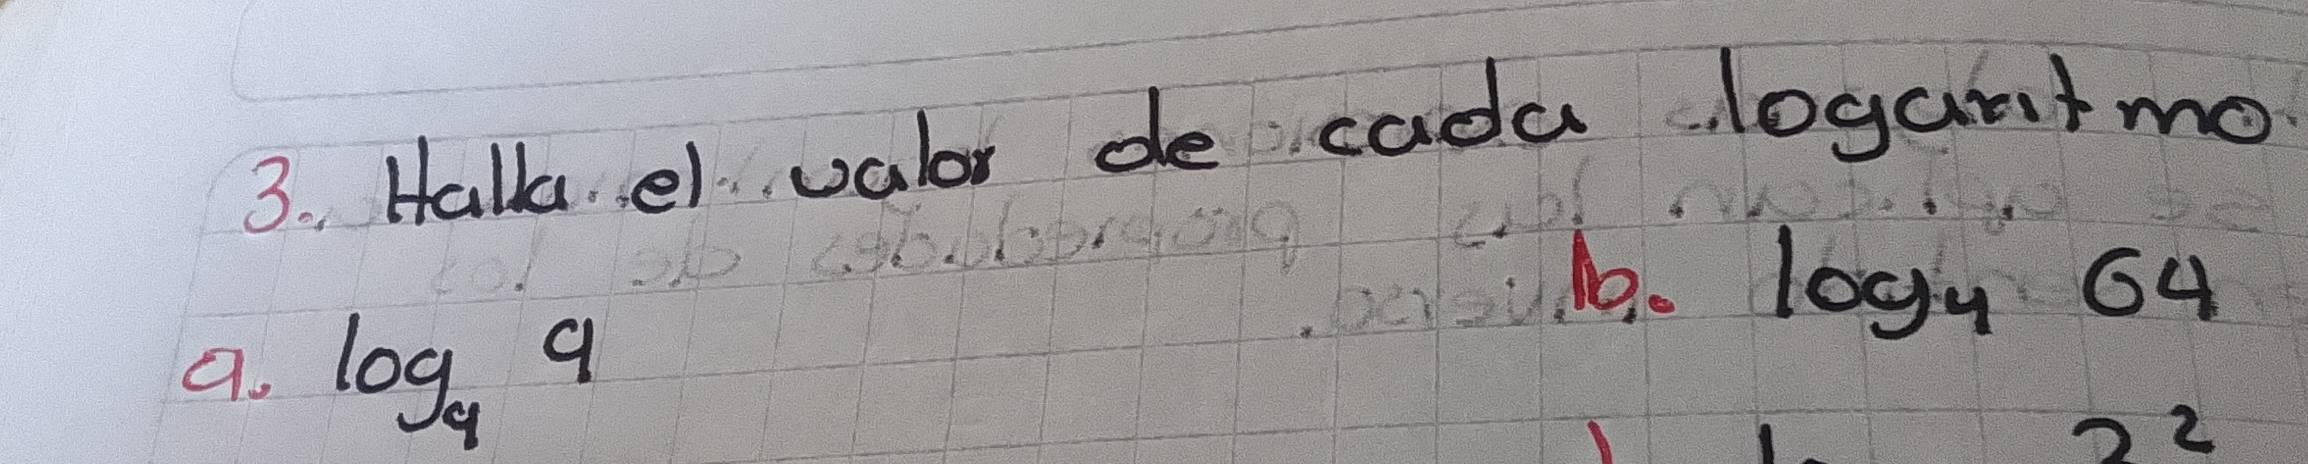 3. Halla el valor de cada logaritmo
a. log₉ 9
b. log₄ 64
2²